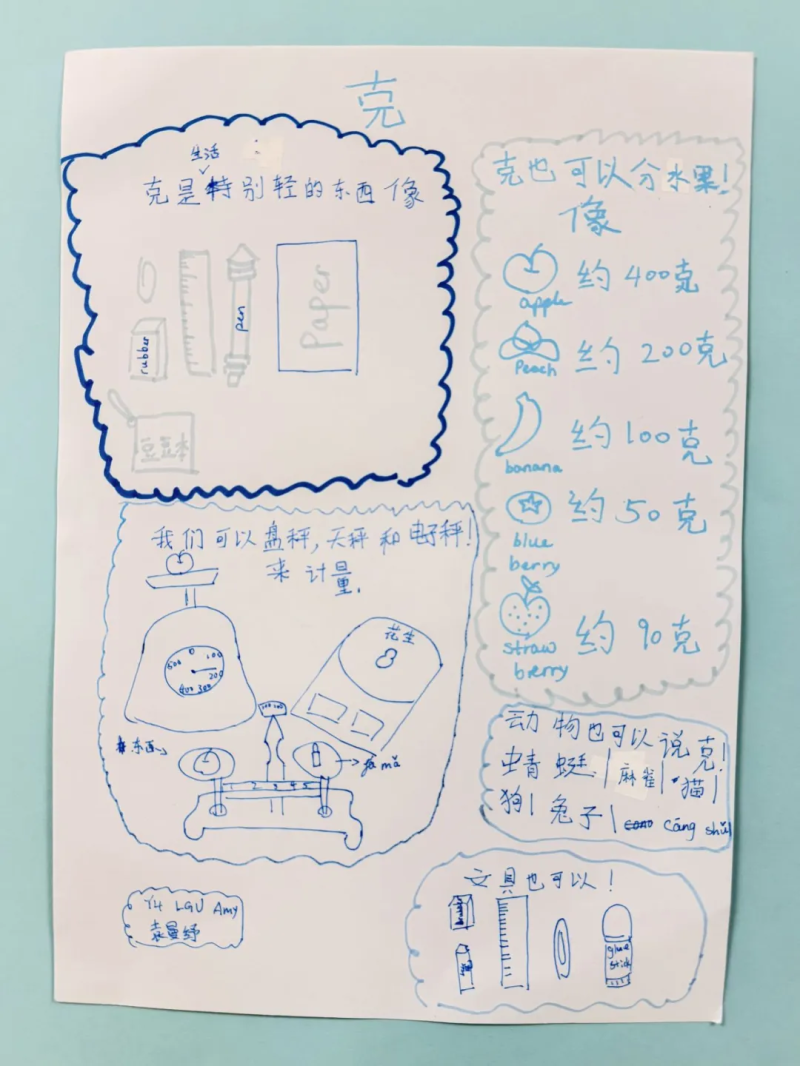 克
生活
克是特别轻的东西像
rubber
pen
Paper
豆豆本
克也可以分水果!
像
apple 约400克
Peach 约200克
banana 约100克
blue
berry 约50克
straw
brerry 约90克
我们可以盘秤,天秤和电子秤!
来计量.
0
500 100
200
400 300
花生
东西→
→fa mǎ
1 2 3 4 5
动物也可以说克!
蜻蜓|麻雀|猫|
狗|兔子| cāng shǔ|
文具也可以!
glue
stick
Y4 LGU Amy